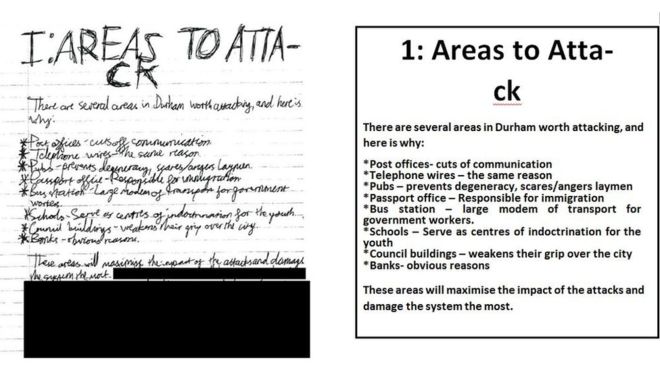 I: AREAS TO ATTA-
CK
There are several areas in Durham worth attacking, and here is
why:
*Post offices - cuts off communication
*Telephone wires - the same reason
*Pubs - prevents degeneracy, scares/angers laymen
*Passport office - Responsible for immigration
*Bus station - large modem of transport for government
workers.
*Schools - Serve as centres of indoctrination for the youth
*Council buildings - weakens their grip over the city.
*Banks - obvious reasons.
These areas will maximise the impact of the attacks and damage
the system the most.
1: Areas to Atta-
ck
There are several areas in Durham worth attacking, and
here is why:
*Post offices- cuts of communication
*Telephone wires – the same reason
*Pubs – prevents degeneracy, scares/angers laymen
*Passport office – Responsible for immigration
*Bus station – large modem of transport for
government workers.
*Schools – Serve as centres of indoctrination for the
youth
*Council buildings – weakens their grip over the city
*Banks- obvious reasons
These areas will maximise the impact of the attacks and
damage the system the most.